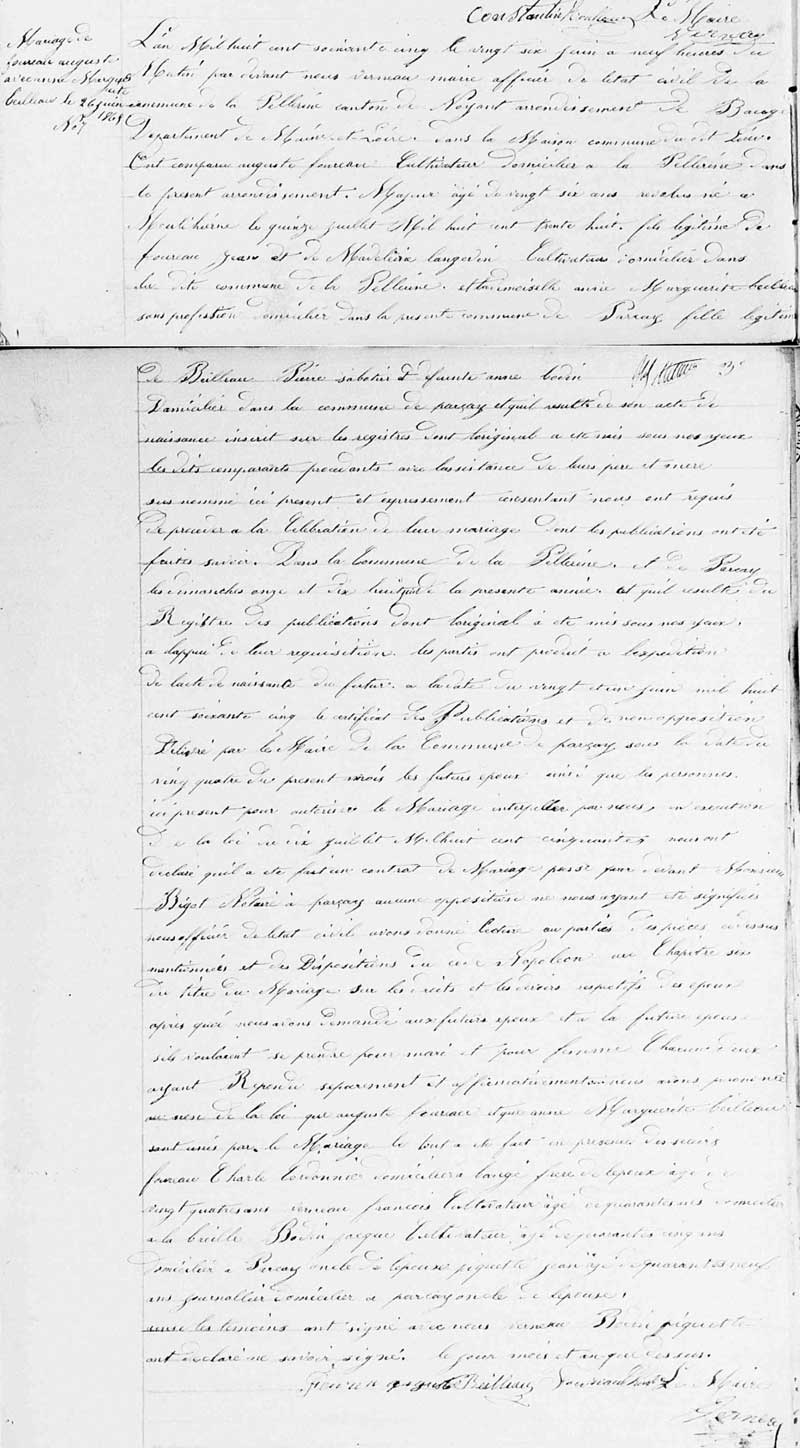 constantin Le Maire
Verneau
Mariage de
foureau auguste
avec anne Margue
rite
beilleau le 26 juin
1865
No 7
L'an Mil huit cent soixante cinq le vingt six juin a neuf heures du
Matin par devant nous verneau maire afficier de letat civil de la
commune de la Pellerine canton de Noyant arrondissement de Baugé
Departement de Maine-et-Loire. dans la Maison commune du dit Lieu.
Ont comparu auguste foureau Cultivateur domicilier a la Pellerine dans
le present arrondissement. Majeur âgé de vingt six ans revolus né a
Mouliherne le quinze juillet Mil huit cent trente huit. fils legitime de
foureau jean et de Madeleine langevin Cultivateurs domicilier dans
la dite commune de la Pellerine. et la demoiselle anne Marguerite beilleau
sans profession domicilier dans la present commune de Parcay fille legitime
de Beilleau Pierre sabotier et defunte anne bodin
Domicilier dans la commune de parçay et quil resulte de son acte de
naissance inscrit sur les registres dont loriginal a ete mis sous nos yeux
les dits comparants procedants avec lassistance de leurs pere et mere
sus nommé ici present et expressement consentant nous ont requis
De proceder a la Celebration de leur mariage dont les publications ont été
faites savoir. Dans la Commune de la Pellerine. et de Parcay
les dimanches onze et dix huit juin de la presente année. et quil resulte du
Registre des publications dont loriginal à ete mis sous nos yeux.
a lappui de leur requisition. les partis ont produit a lexpedition
de lacte de naissance du futur. a la date du vingt et un juin mil huit
cent soixante cinq le certificat des Publications et de non opposition
Délivré par le Maire de la Commune de parçay sous la date du
ving quatre du present mois les futurs epoux ainsi que les personnes.
ici present pour autoriser le Mariage interpeller par nous, en execution
De la loi du dix juillet Mil huit cent cinquante, nous ont
declaré quil a ete fait un contrat de Mariage passé par devant Monsieur
Bigot Notaire à parçay aucune opposition ne nous ayant été signifiés
nous afficier de letat civil avons donné lecture au parties des pieces cidessus
mentionnées et des Dispositions du code Napoleon au Chapitre six
du titre du Mariage sur les droits et les devoirs respectifs des epoux
après quoi nous avons demandé aux futurs epoux et a la future epouse
sils voulaient se prendre pour mari et pour femme Chacun deux
ayant Repondu separement et affirmativement nous avons prononcé
au nom de la loi que auguste foureau et que anne Marguerite beilleau
sont unis par le Mariage le tout a ete fait en presence des sieurs
foureau Charle Cordonnié domicilier a langé frere de lepoux âgé de
vingt quatre ans verneau francois Cultivateur âgé de quarante domicilier
a la breille Bodin jacque Cultivateur âgé de quarante cinq ans
domicilier a Parcay oncle de lepouse piquet le jean âgé de quarante neuf
ans journallier domicilier a parçay oncle de lepouse.
les temoins ont signé avec nous verneau Bodin piquet le
ont declaré ne savoir signé. le jour mois et an que dessus.
foureau auguste Beilleau Le Maire
Verneau